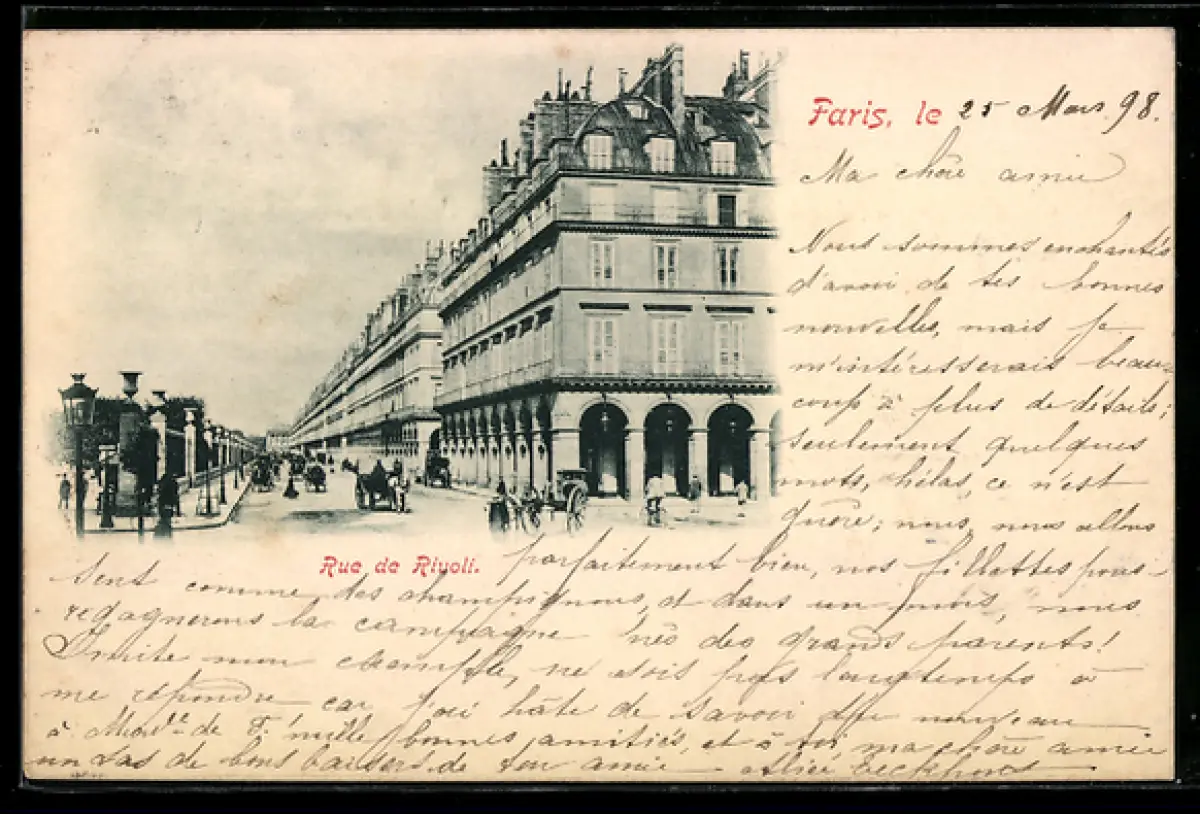 Paris, le 25 Mars 98.
Ma chère amie
Nous sommes enchantés
d'avoir de tes bonnes
nouvelles, mais je
m'intéresserais beau-
coup à plus de détails;
seulement quelques
mots, hélas, ce n'est
guère; nous, nous allons
Rue de Rivoli.
parfaitement bien, nos fillettes pous-
sent comme des champignons, et dans un mois, nous
regagnerons la campagne des grands parents!
Imite mon exemple, ne sois pas longtemps à
me répondre car j'ai hâte de savoir du nouveau
à de F. mille bonnes amitiés, et à toi, ma chère amie
un tas de bons baisers de ton amie Alice